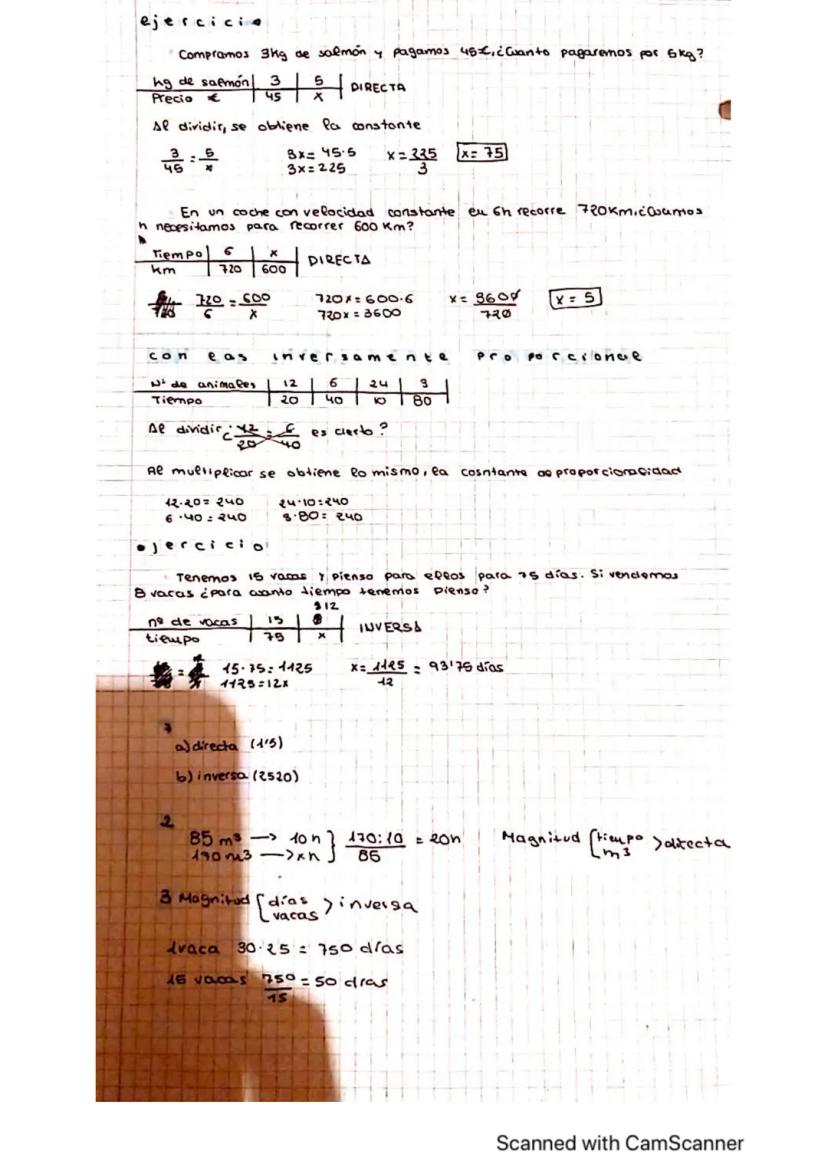 ejercicio
Compramos 3kg de salmón y pagamos 45€, ¿Cuanto pagaremos por 5kg?
kg de salmón | 3 | 5 | DIRECTA
Precio € | 45 | x |
Al dividir, se obtiene la constante
3/45 = 5/x 3x = 45·5 x = 225/3 x = 75
3x = 225
En un coche con velocidad constante en 6h recorre 720Km, ¿Cuantos
h necesitamos para recorrer 600 Km?
Tiempo | 6 | x | DIRECTA
km | 720 | 600 |
720/6 = 600/x 720x = 600·6 x = 3600/720 x = 5
720x = 3600
con las inversamente proporcionale
Nº de animales | 12 | 6 | 24 | 3 |
Tiempo | 20 | 40 | 10 | 80 |
Al dividir ¿ 12/20 = 6/40 es cierto?
Al multiplicar se obtiene lo mismo, la cosntante de proporcionalidad
12·20 = 240 24·10 = 240
6·40 = 240 3·80 = 240
ejercicio
Tenemos 15 vacas y pienso para ellos para 75 días. Si vendemos
3 vacas ¿para cuanto tiempo tenemos pienso?
12
nº de vacas | 15 | | INVERSA
tiempo | 75 | x |
15·75 = 1125 x = 1125/12 = 93'75 días
1125 = 12x
1
a) directa (1'5)
b) inversa (2520)
2
85 m³ —> 10h } 170:10/85 = 20h Magnitud [ tiempo > directa
170 m3 —> xh } m³
3 Magnitud [ días > inversa
vacas
1 vaca 30·25 = 750 días
15 vacas 750/15 = 50 días
Scanned with CamScanner